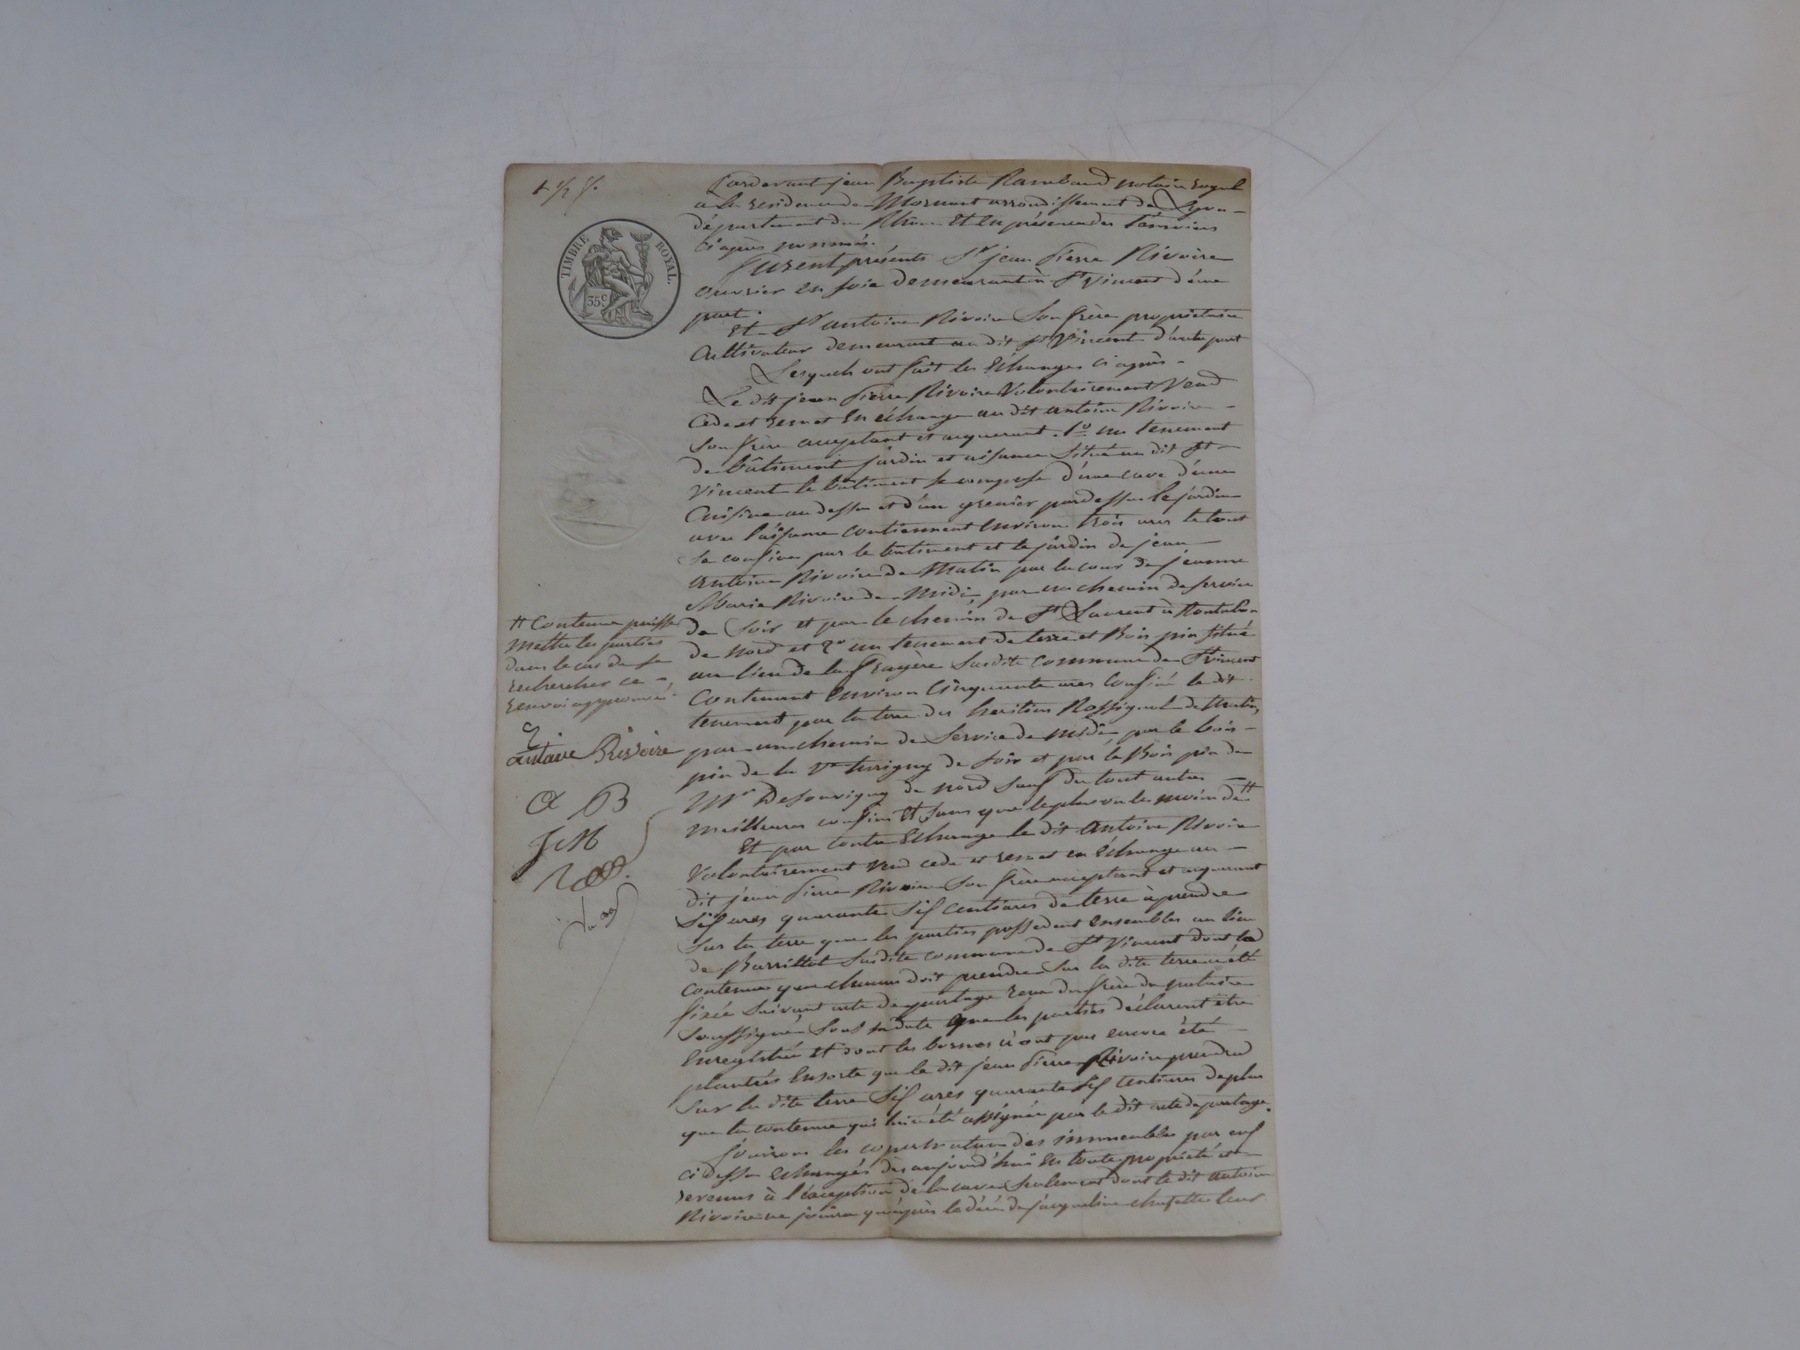 TIMBRE ROYAL.
35 c
Pardevant jean Baptiste Rambaud notaire royal
a la residence de Mornant arrondissement de Lyon
département du Rhone Et en présence des témoins
ci après nommés.
furent présents Sr jean Pierre Rivoire
ouvrier en soie demeurant à St Vincent d'une
part.
Et Sr antoine Rivoire son frère propriétaire
Cultivateur demeurant au dit St Vincent d'autre part
Lesquels ont fait les Echanges ci après
Le dit jean Pierre Rivoire Volontairement Vend
Cede et remet En échange au dit antoine Rivoire
son frère acceptant et acquerant 1o un tenement
de bâtiment jardin et aisance Situé au dit St
Vincent le bâtiment se compose d'une cave d'une
Cuisine au dessu et d'un grenier pardessu le jardin
avec l'aisance contiennent environ trois ares le tout
se confine par le batiment et le jardin de jean
antoine Rivoire de Matin par la cour de jeanne
Marie Rivoire de Midi, par un chemin de service
de Soir et par le chemin de St Laurent à
de Nord et 2o un tenement de terre et Bois pin situé
au lieu de la susdite commune de St Vincent
Contenant environ Cinquante ares Confiné le dit
tenement par la terre des heritiers Rossignol de Matin,
par un chemin de Service de midi, par le bois
pin de la Ve de soir et par le Bois pin de
Mr Desouvigny de nord Sauf du tout autres
Meilleures confins Et Sans que le plus ou le moins de #
Et par contre Echange le dit Antoine Rivoire
Volontairement Vend cede et remet en Echange au
dit jean Pierre Rivoire son frère acceptant et acquerant
Six ares quarante Six centiares de terre à prendre
Sur la terre que les parties possedent ensembles au lieu
de susdite commune de St Vincent dont la
Contenue que chacun doit prendre Sur la dite terre a été
fixée Suivant acte de partage recu du frère du notaire
Soussigné Sous sa date que les parties déclarent être
Enregistré Et dont les bornes n'ont pas encore été
plantées Ensorte que le dit jean Pierre Rivoire prendra
Sur la dite terre Six ares quarante Six Centiares de plus
que la contenue qui lui a été assignée par le dit acte de partage.
Jouiront les copermutans des immeubles par eux
ci dessu échangés des aujourd'hui En toute propriété et
revenus à l'éxception de la cave Seulement dont le dit Antoine
Rivoire ne jouira qu'après le décé de jacqueline leur
# Contenue puisse
Mettre les parties
dans le cas de se
rechercher ce
renvoi approuvé.
antoine Rivoire